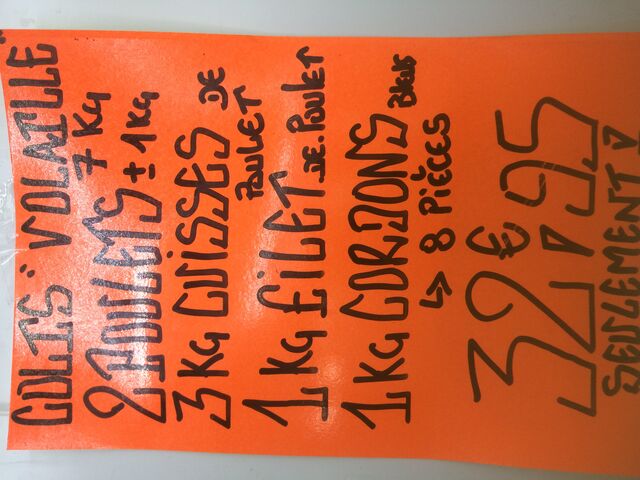 COLIS "VOLAILLE"
7 Kg
2 POULETS ± 1 Kg
3 Kg CUISSES DE
POULET
1 Kg FILET DE POULET
1 Kg CORDONS Bleus
↳ 8 PIÈCES
32,95
€
SEULEMENT